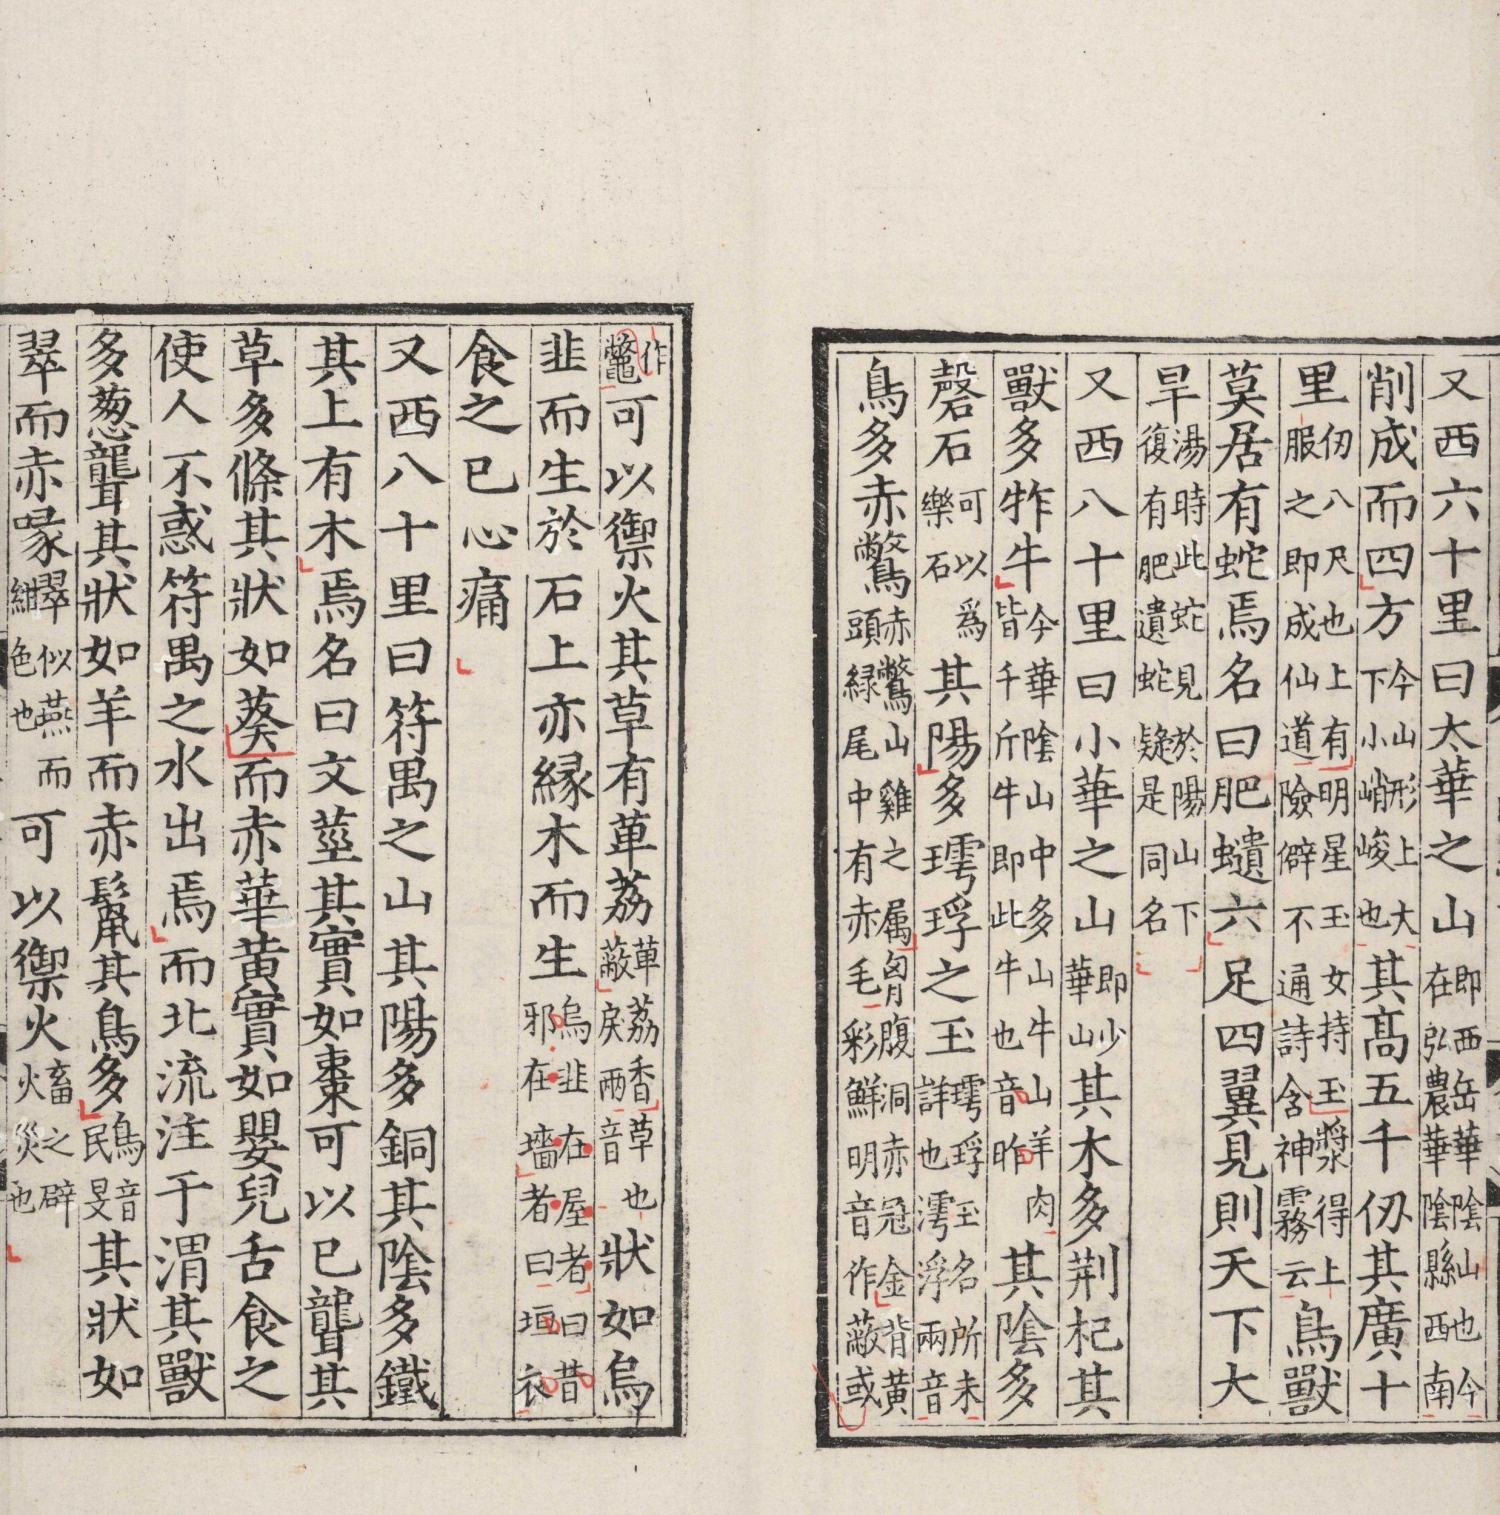 又西六十里曰太華之山即西岳華陰山也今在弘農華陰縣西南
削成而四方今山形上大下小峭峻也其高五千仞其廣十
里仞八尺也上有明星玉女持玉漿得上服之即成仙道險僻不通詩含神霧云鳥獸
莫居有蛇焉名曰肥𧔥六足四翼見則天下大
旱湯時此蛇見於陽山下復有肥遺蛇疑是同名
又西八十里曰小華之山即少華山其木多荆杞其
獸多㸲牛今華陰山中多山牛山羊肉皆千斤牛即此牛也音昨其陰多
磬石可以爲樂石其陽多㻬琈之玉㻬琈玉名所未詳也澪浮兩音
鳥多赤鷩赤鷩山雞之属胷腹洞赤冠金背黄頭緑尾中有赤毛彩鮮明音作蔽或
作鼈可以禦火其草有萆荔萆荔香草也蔽戾兩音狀如烏
韭而生於石上亦緣木而生烏韭在屋者曰昔邪在墻者曰垣衣
食之已心痛
又西八十里曰符禺之山其陽多銅其陰多鐵
其上有木焉名曰文莖其實如棗可以已聾其
草多條其狀如葵而赤華黄實如嬰兒舌食之
使人不惑符禺之水出焉而北流注于渭其獸
多葱聾其狀如羊而赤鬛其鳥多鳥音旻民其狀如
翠而赤喙翠似燕而紺色也可以禦火畜之辟火災也